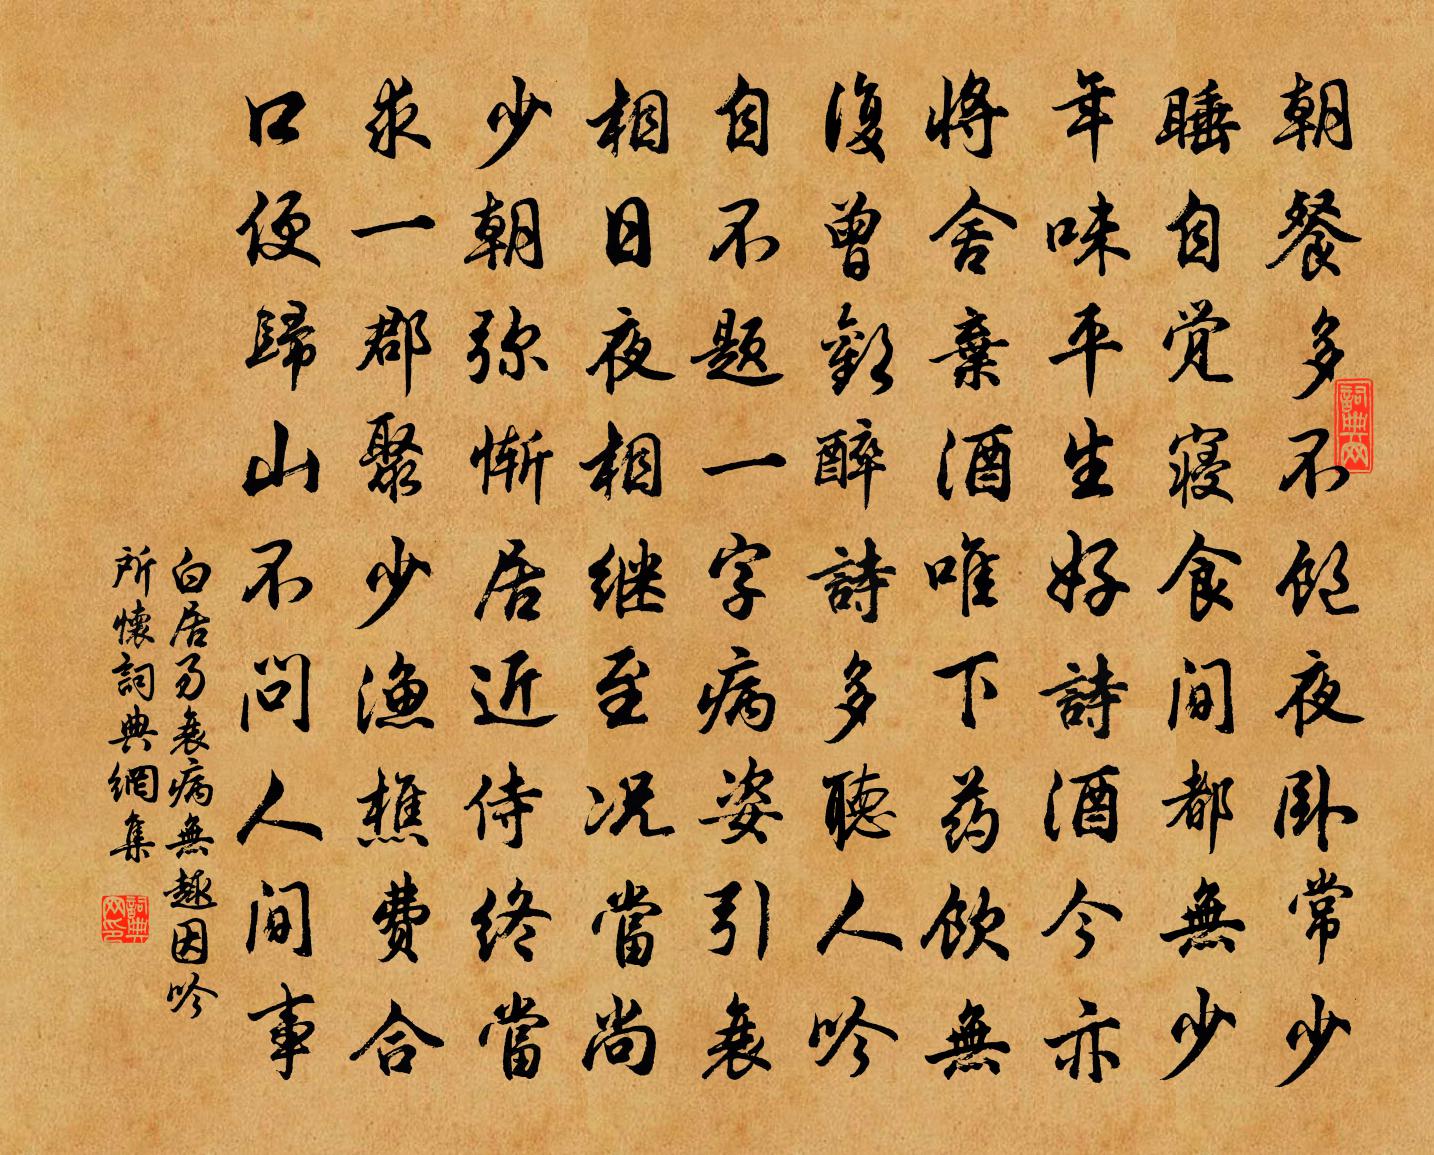 朝餐多不飽夜卧常少
睡自觉寝食間都無少
年味平生好詩酒今亦
將舍棄酒唯下药飲無
復曾歡醉詩多聽人吟
自不题一字病姿引衰
相日夜相继至况當尚
少朝弥惭居近侍终當
求一郡聚少渔樵費合
口便歸山不問人間事
白居易衰病無趣因吟
所懷詞典網集
詞典网
詞典网印